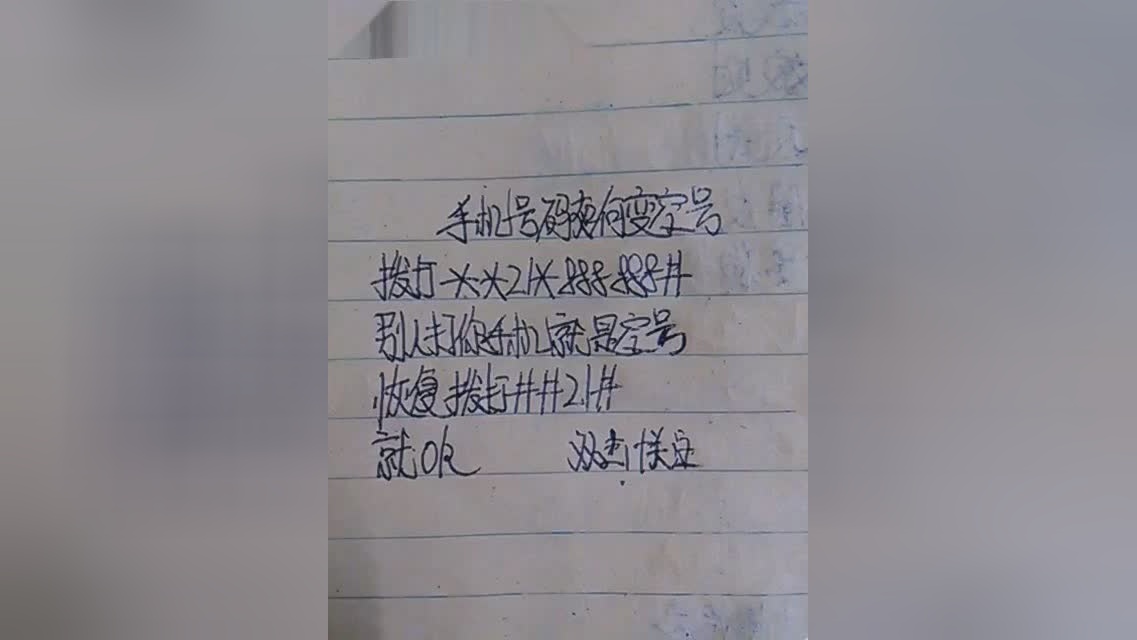 手机号码如何变空号
拨打**21*888888#
别人打你手机就是空号
恢复拨打##21#
就OK 双击关注